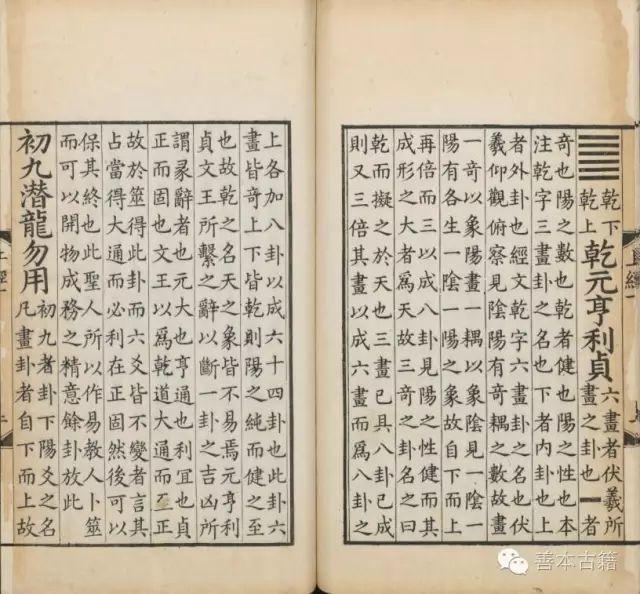 乾下
乾上
乾元亨利貞
六畫者伏羲所
畫之卦也一者
奇也陽之數也乾者健也陽之性也本
注乾字三畫卦之名也下者內卦也上
者外卦也經文乾字六畫卦之名也伏
羲仰觀俯察見陰陽有奇耦之數故畫
一奇以象陽畫一耦以象陰見一陰一
陽有各生一陰一陽之象故自下而上
再倍而三以成八卦見陽之性健而其
成形之大者爲天故三奇之卦名之曰
乾而擬之於天也三畫已具八卦已成
則又三倍其畫以成六畫而爲八卦之
上各加八卦以成六十四卦也此卦六
畫皆奇上下皆乾則陽之純而健之至
也故乾之名天之象皆不易焉元亨利
貞文王所繫之辭以斷一卦之吉凶所
謂彖辭者也元大也亨通也利宜也貞
正而固也文王以爲乾道大通而至正
故於筮得此卦而六爻皆不變者言其
占當得大通而必利在正固然後可以
保其終也此聖人所以作易教人卜筮
而可以開物成務之精意餘卦放此
初九潛龍勿用
初九者卦下陽爻之名
凡畫卦者自下而上故
善本古籍